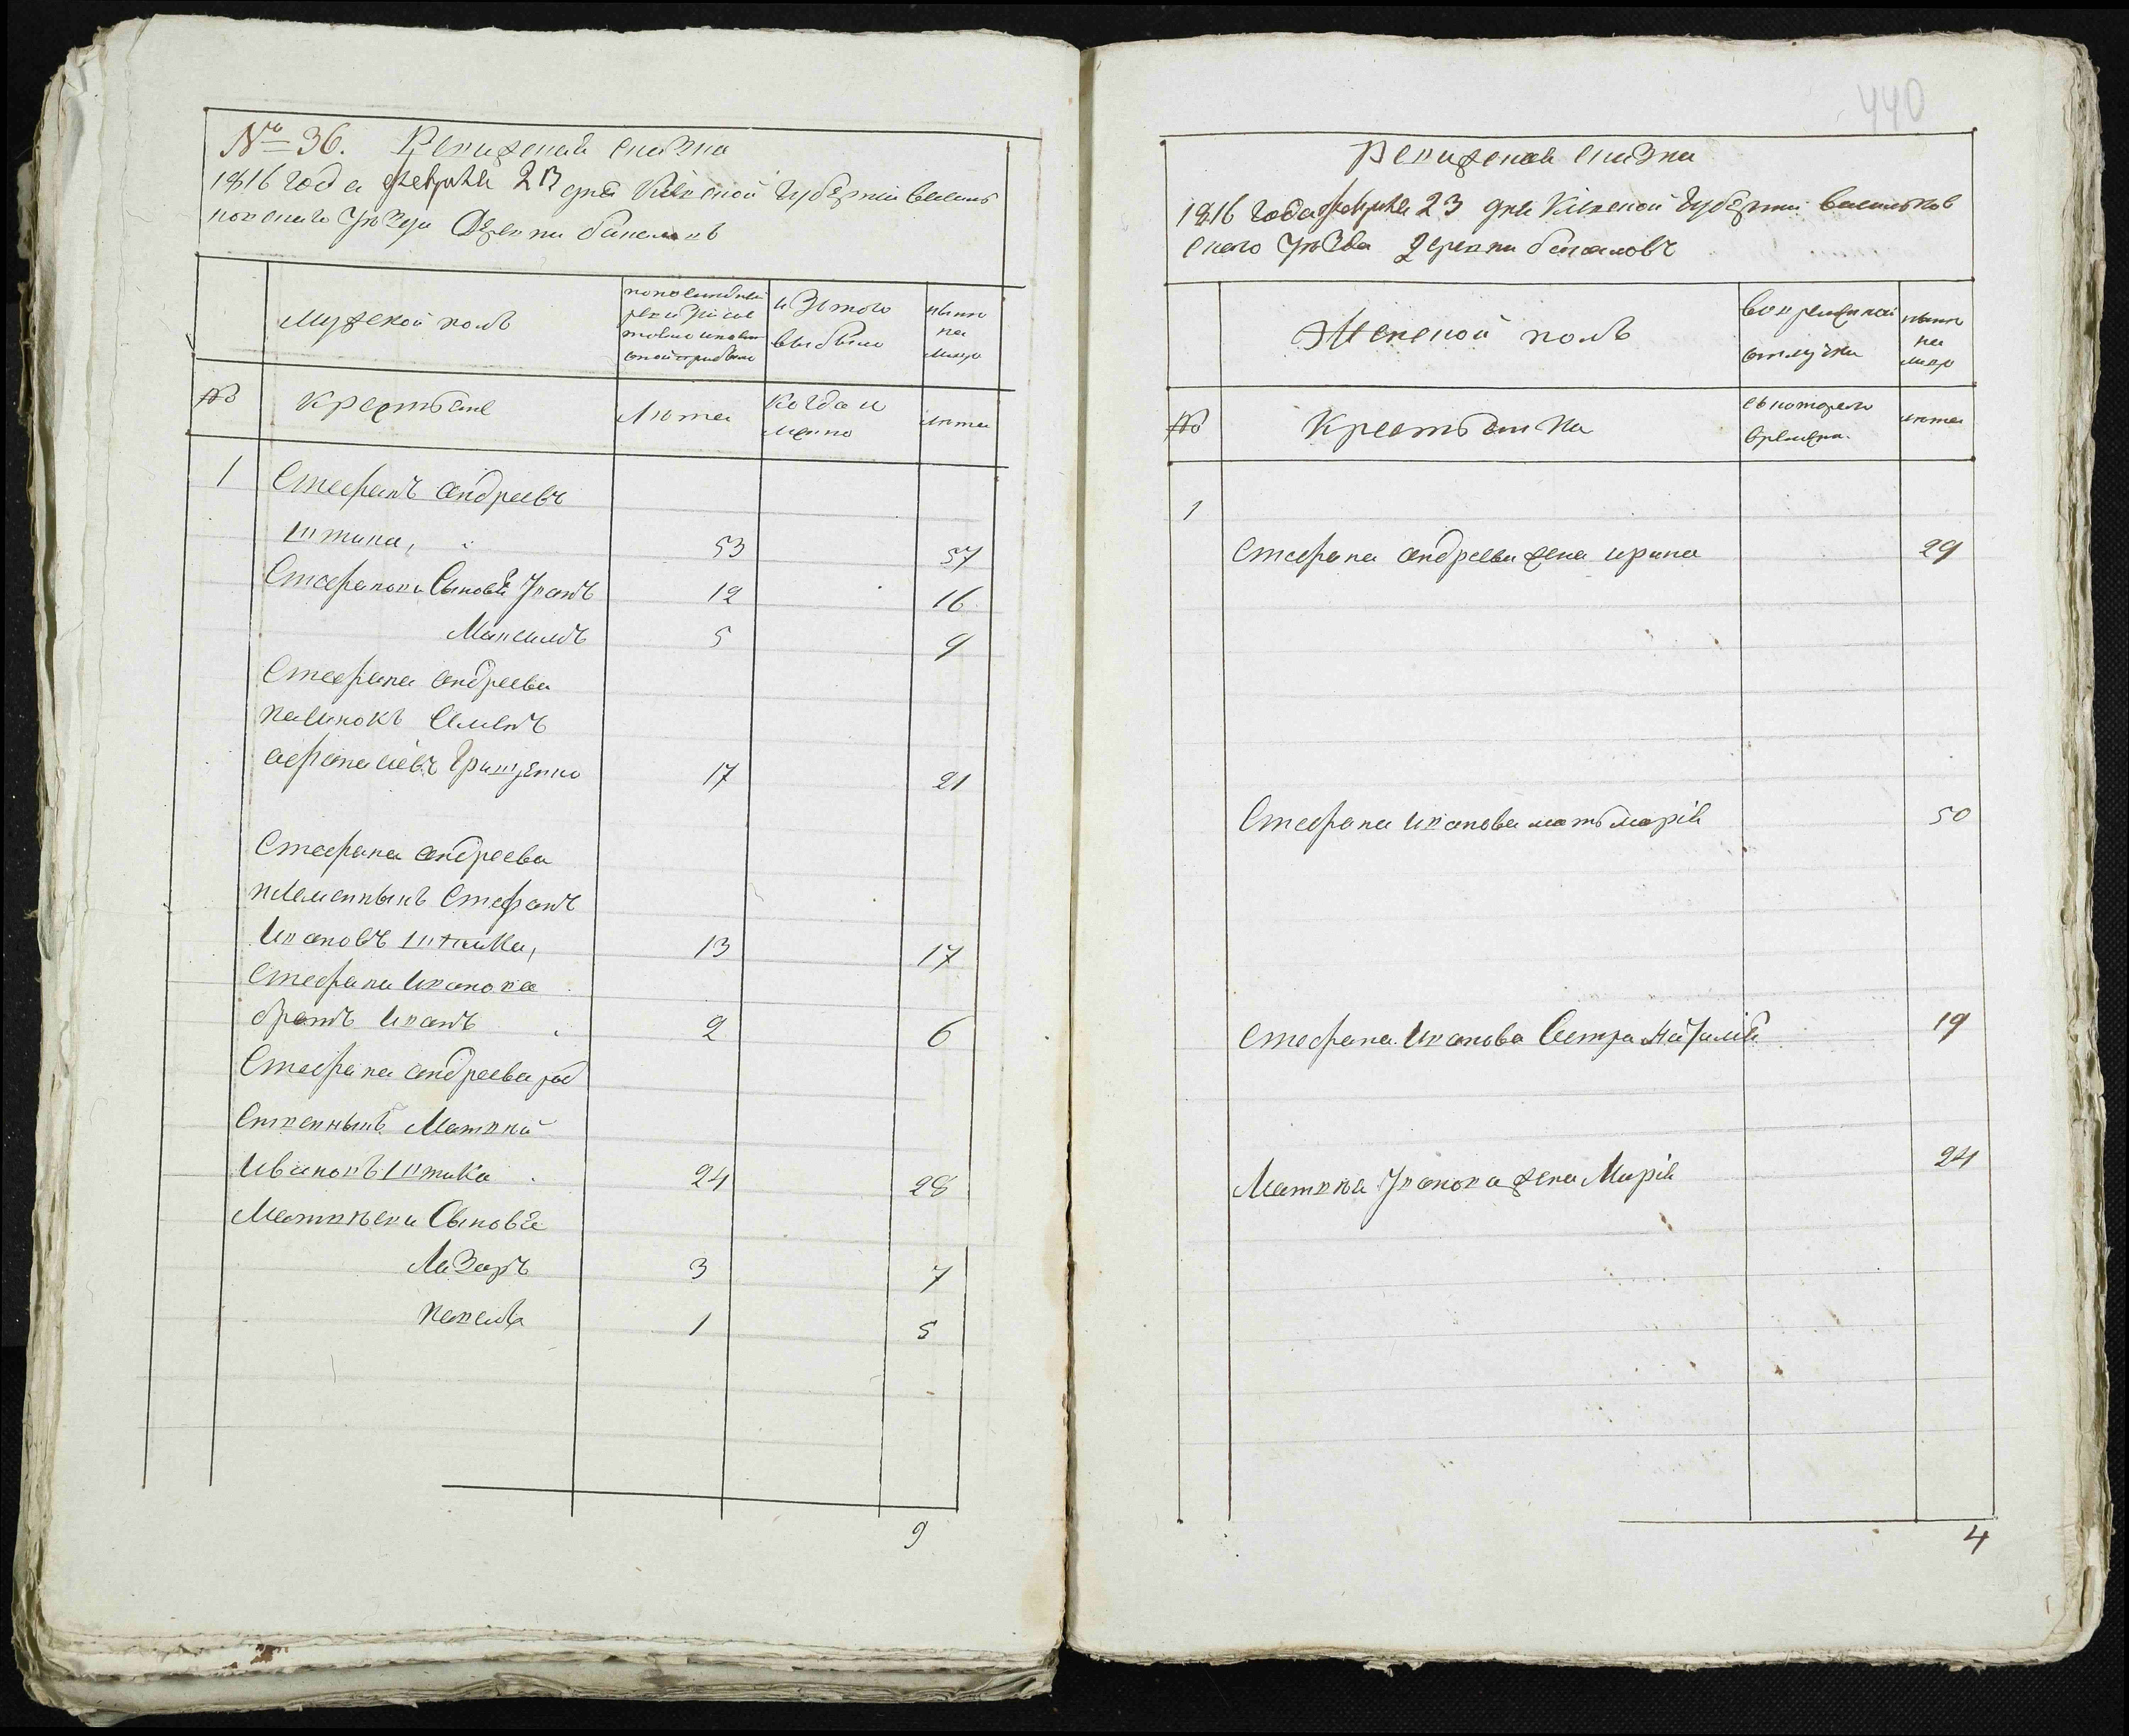 № 36. Ревизская сказка
1816 года февраля 23 дня Кіевской губерніи василь
ковскаго уѣзда деревни
Мужеской полъ
по последней
ревизіи со
стояло и после
оной прибыло
изъ того
выбыло
нынѣ
на
лицо
№
Крестьяне
Лѣта
Когда и
менно
лѣта
1
Стефанъ андреевъ
53
57
Стефановы Сыновья Іванъ 12 16
Максимъ 5 9
Стефана андреева
Семенъ
афанасіевъ Грищенко 17 21
Стефана андреева
племенникъ Стефанъ
Ивановъ 13 17
Стефана Иванова
братъ Иванъ 2 6
Стефана андреева род
ственникъ Матвѣй
Ивановъ 24 28
Матвѣевы Сыновья
Лазаръ 3 7
Павелъ 1 5
9
440
Ревизская сказка
1816 года февраля 23 дня Кіевской губерніи васильков
скаго уѣзда деревни
Женской полъ
во временной
отлучки
нынѣ
на
лицо
№
Крестьянки
съ котораго
времени.
лѣта
1
Стефана андреева жена ирина 29
Стефана Иванова мать марія 50
Стефана Иванова Сестра Наталія 19
Матвѣя Іванова жена Марія 24
4